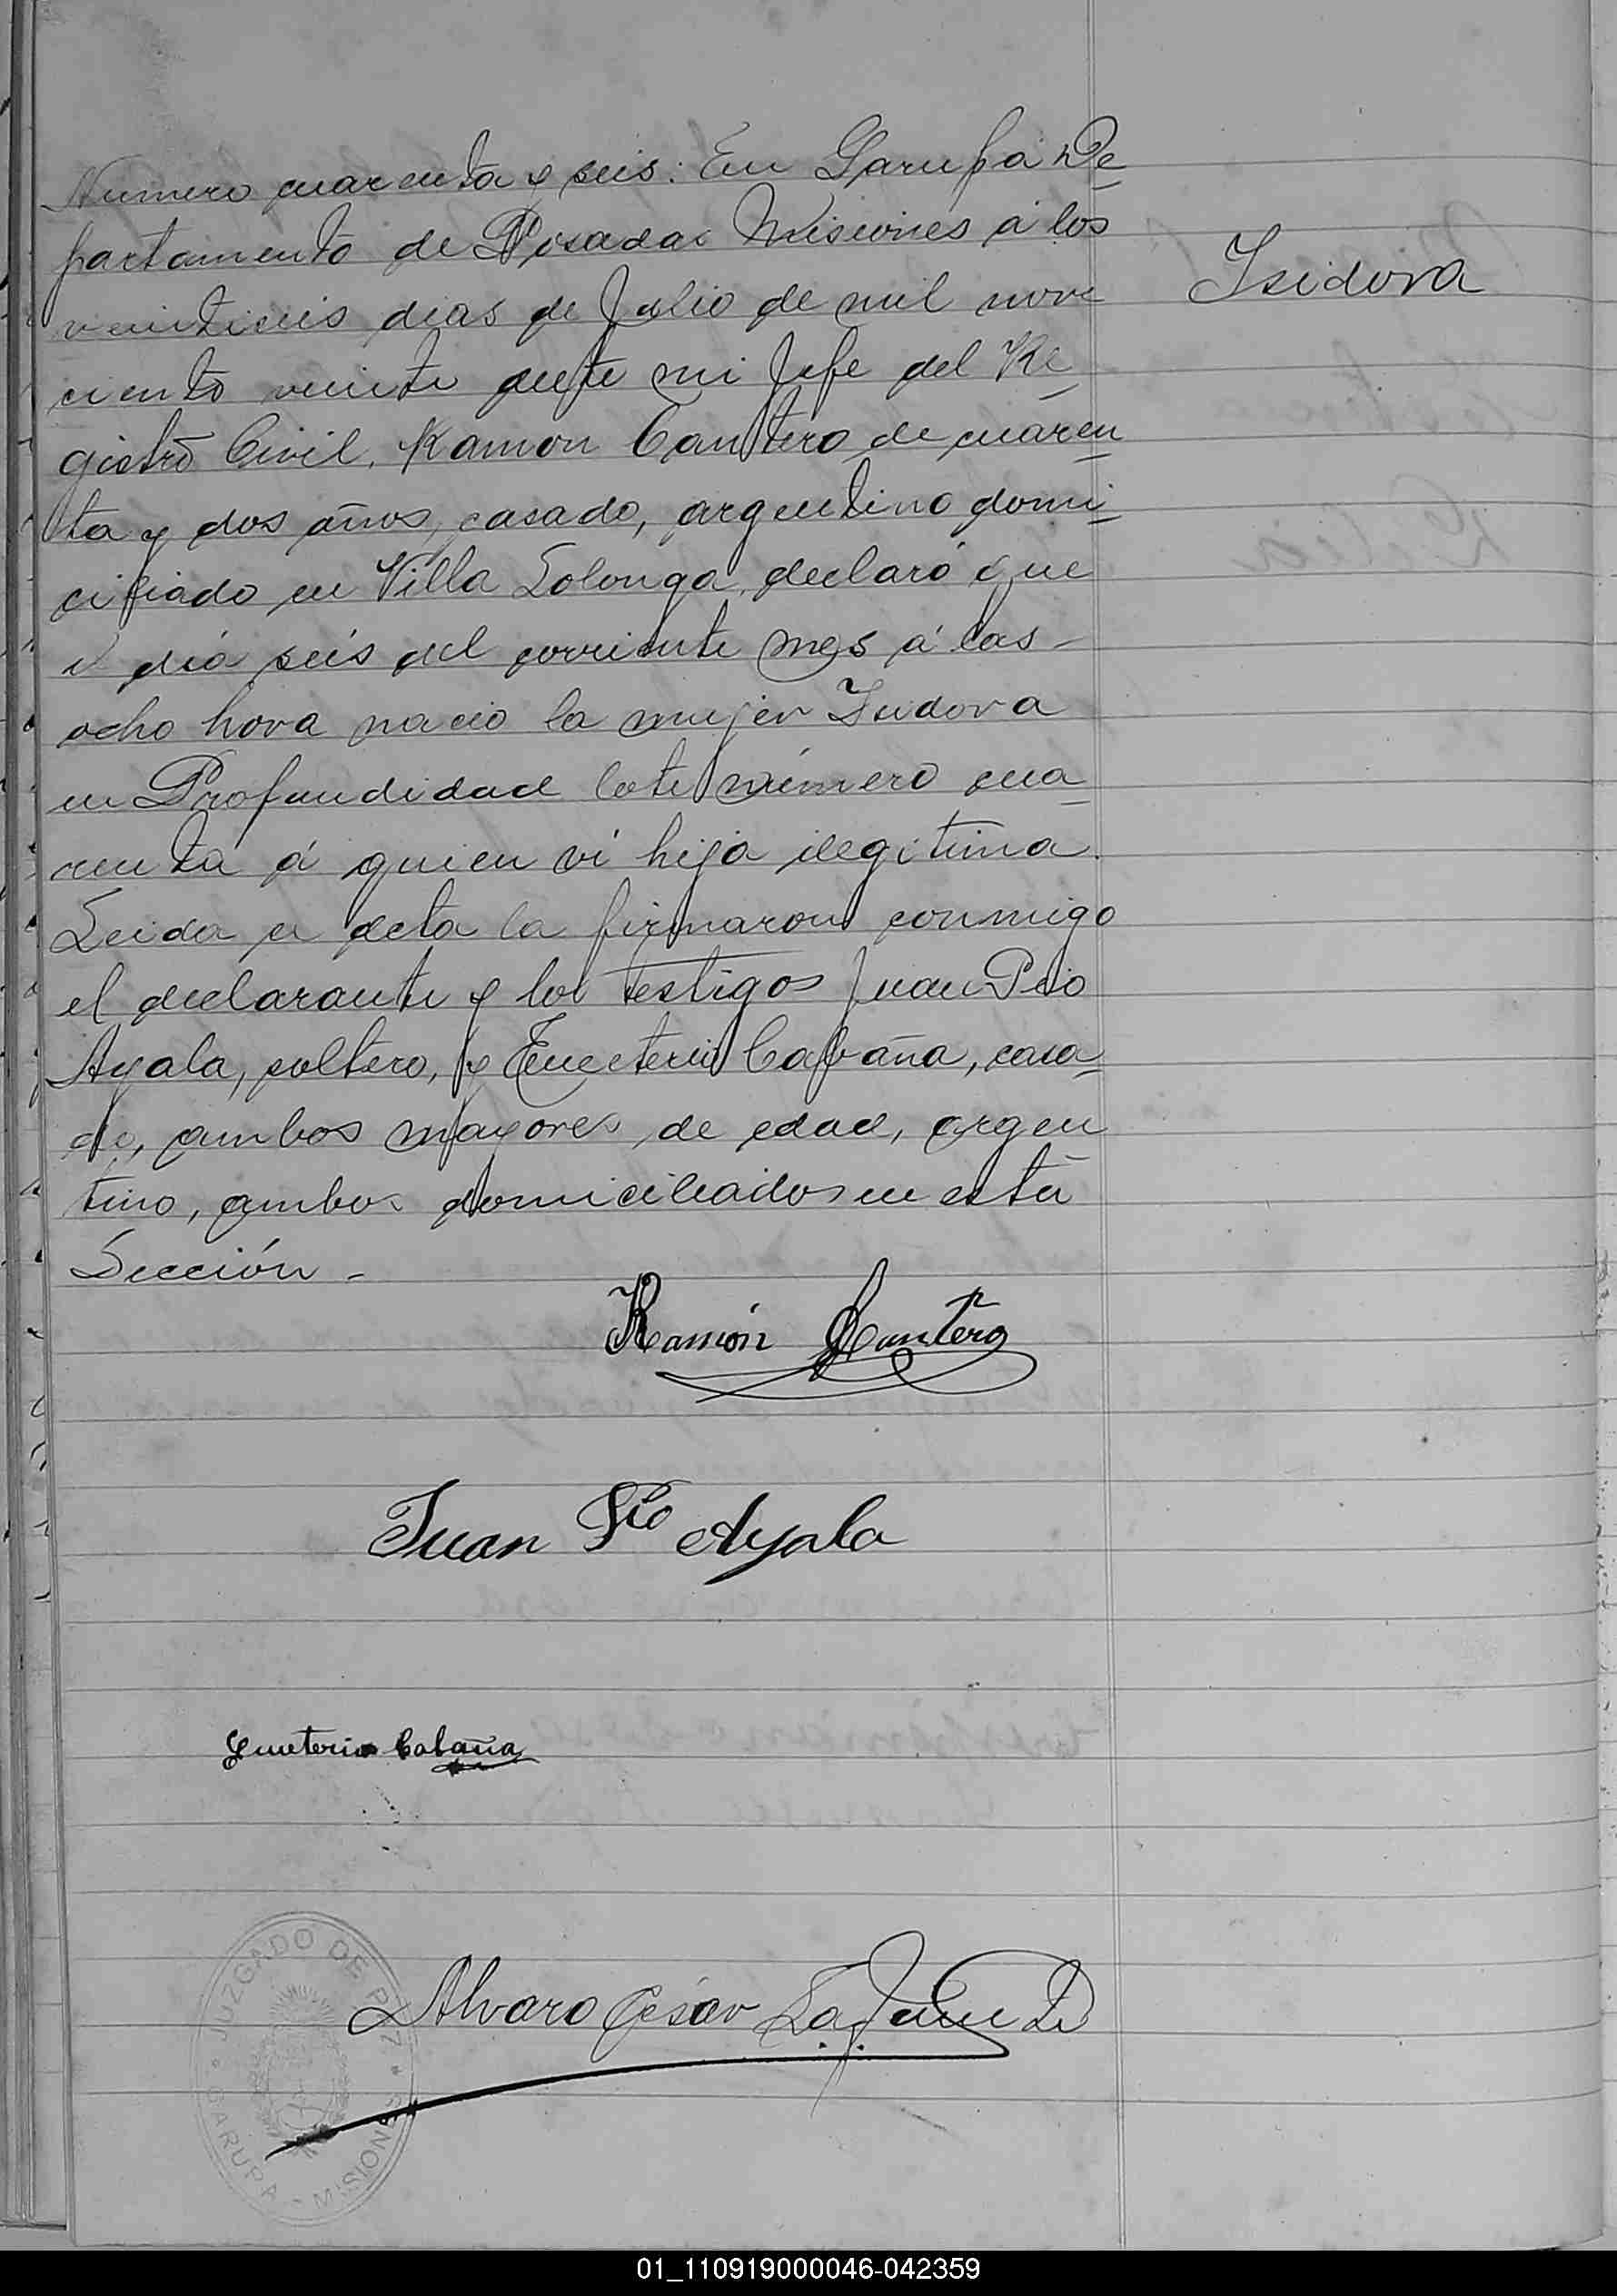 Numero cuarenta y seis: En Garupá De=
partamento de Posadas Misiones á los
veintiseis dias de Julio de mil nove
Isidora
ciento veinte ante mi Jefe del Re
gistro Civil, Ramon Cantero de cuaren
ta y dos años, casado, argentino domi
ciliado en Villa Lolonga, declaró que
el dia seis del corriente mes á las -
ocho hora nació la mujer Isidora
en Profundidad lote número cua
renta á quien vi hija ilegitima.
Leida el acta la firmaron conmigo
el declarante y los testigos Juan Pio
Ayala, soltero, y Emeterio Cabaña, casa=
do, ambos mayores de edad, argen
tino, ambos domiciliados en esta
Sección -
Ramón Cantero
Juan Pio Ayala
Emeterio Cabaña
Alvaro César
JUZGADO DE PAZ
GARUPA - MISIONES
01_110919000046-042359